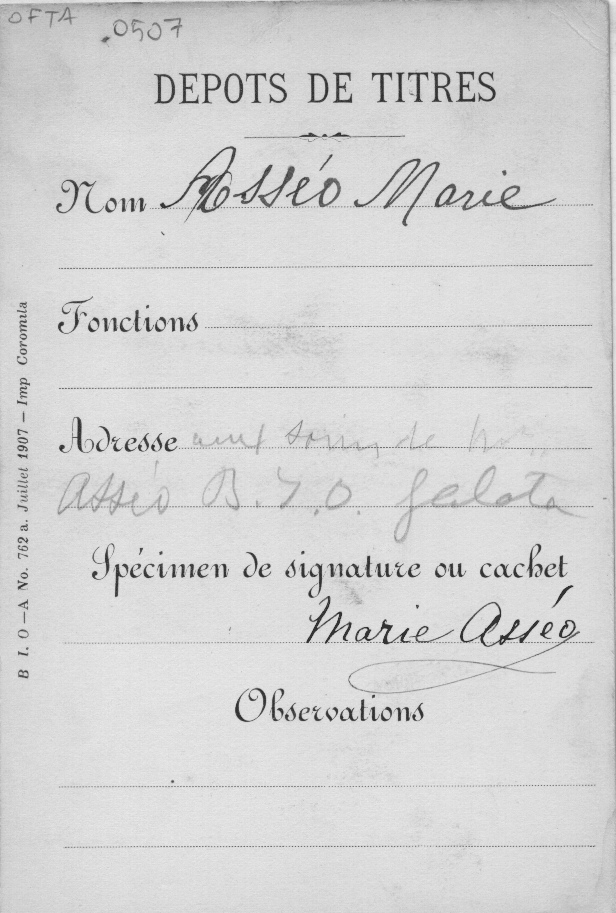 OFTA
.0507
DEPOTS DE TITRES
Nom Asséo Marie
Fonctions
Adresse aux soins de
Asséo B.I.O. Galata
Spécimen de signature ou cachet
Marie Asséo
Observations
B I. O—A No. 762 a. Juillet 1907 — Imp Coromila